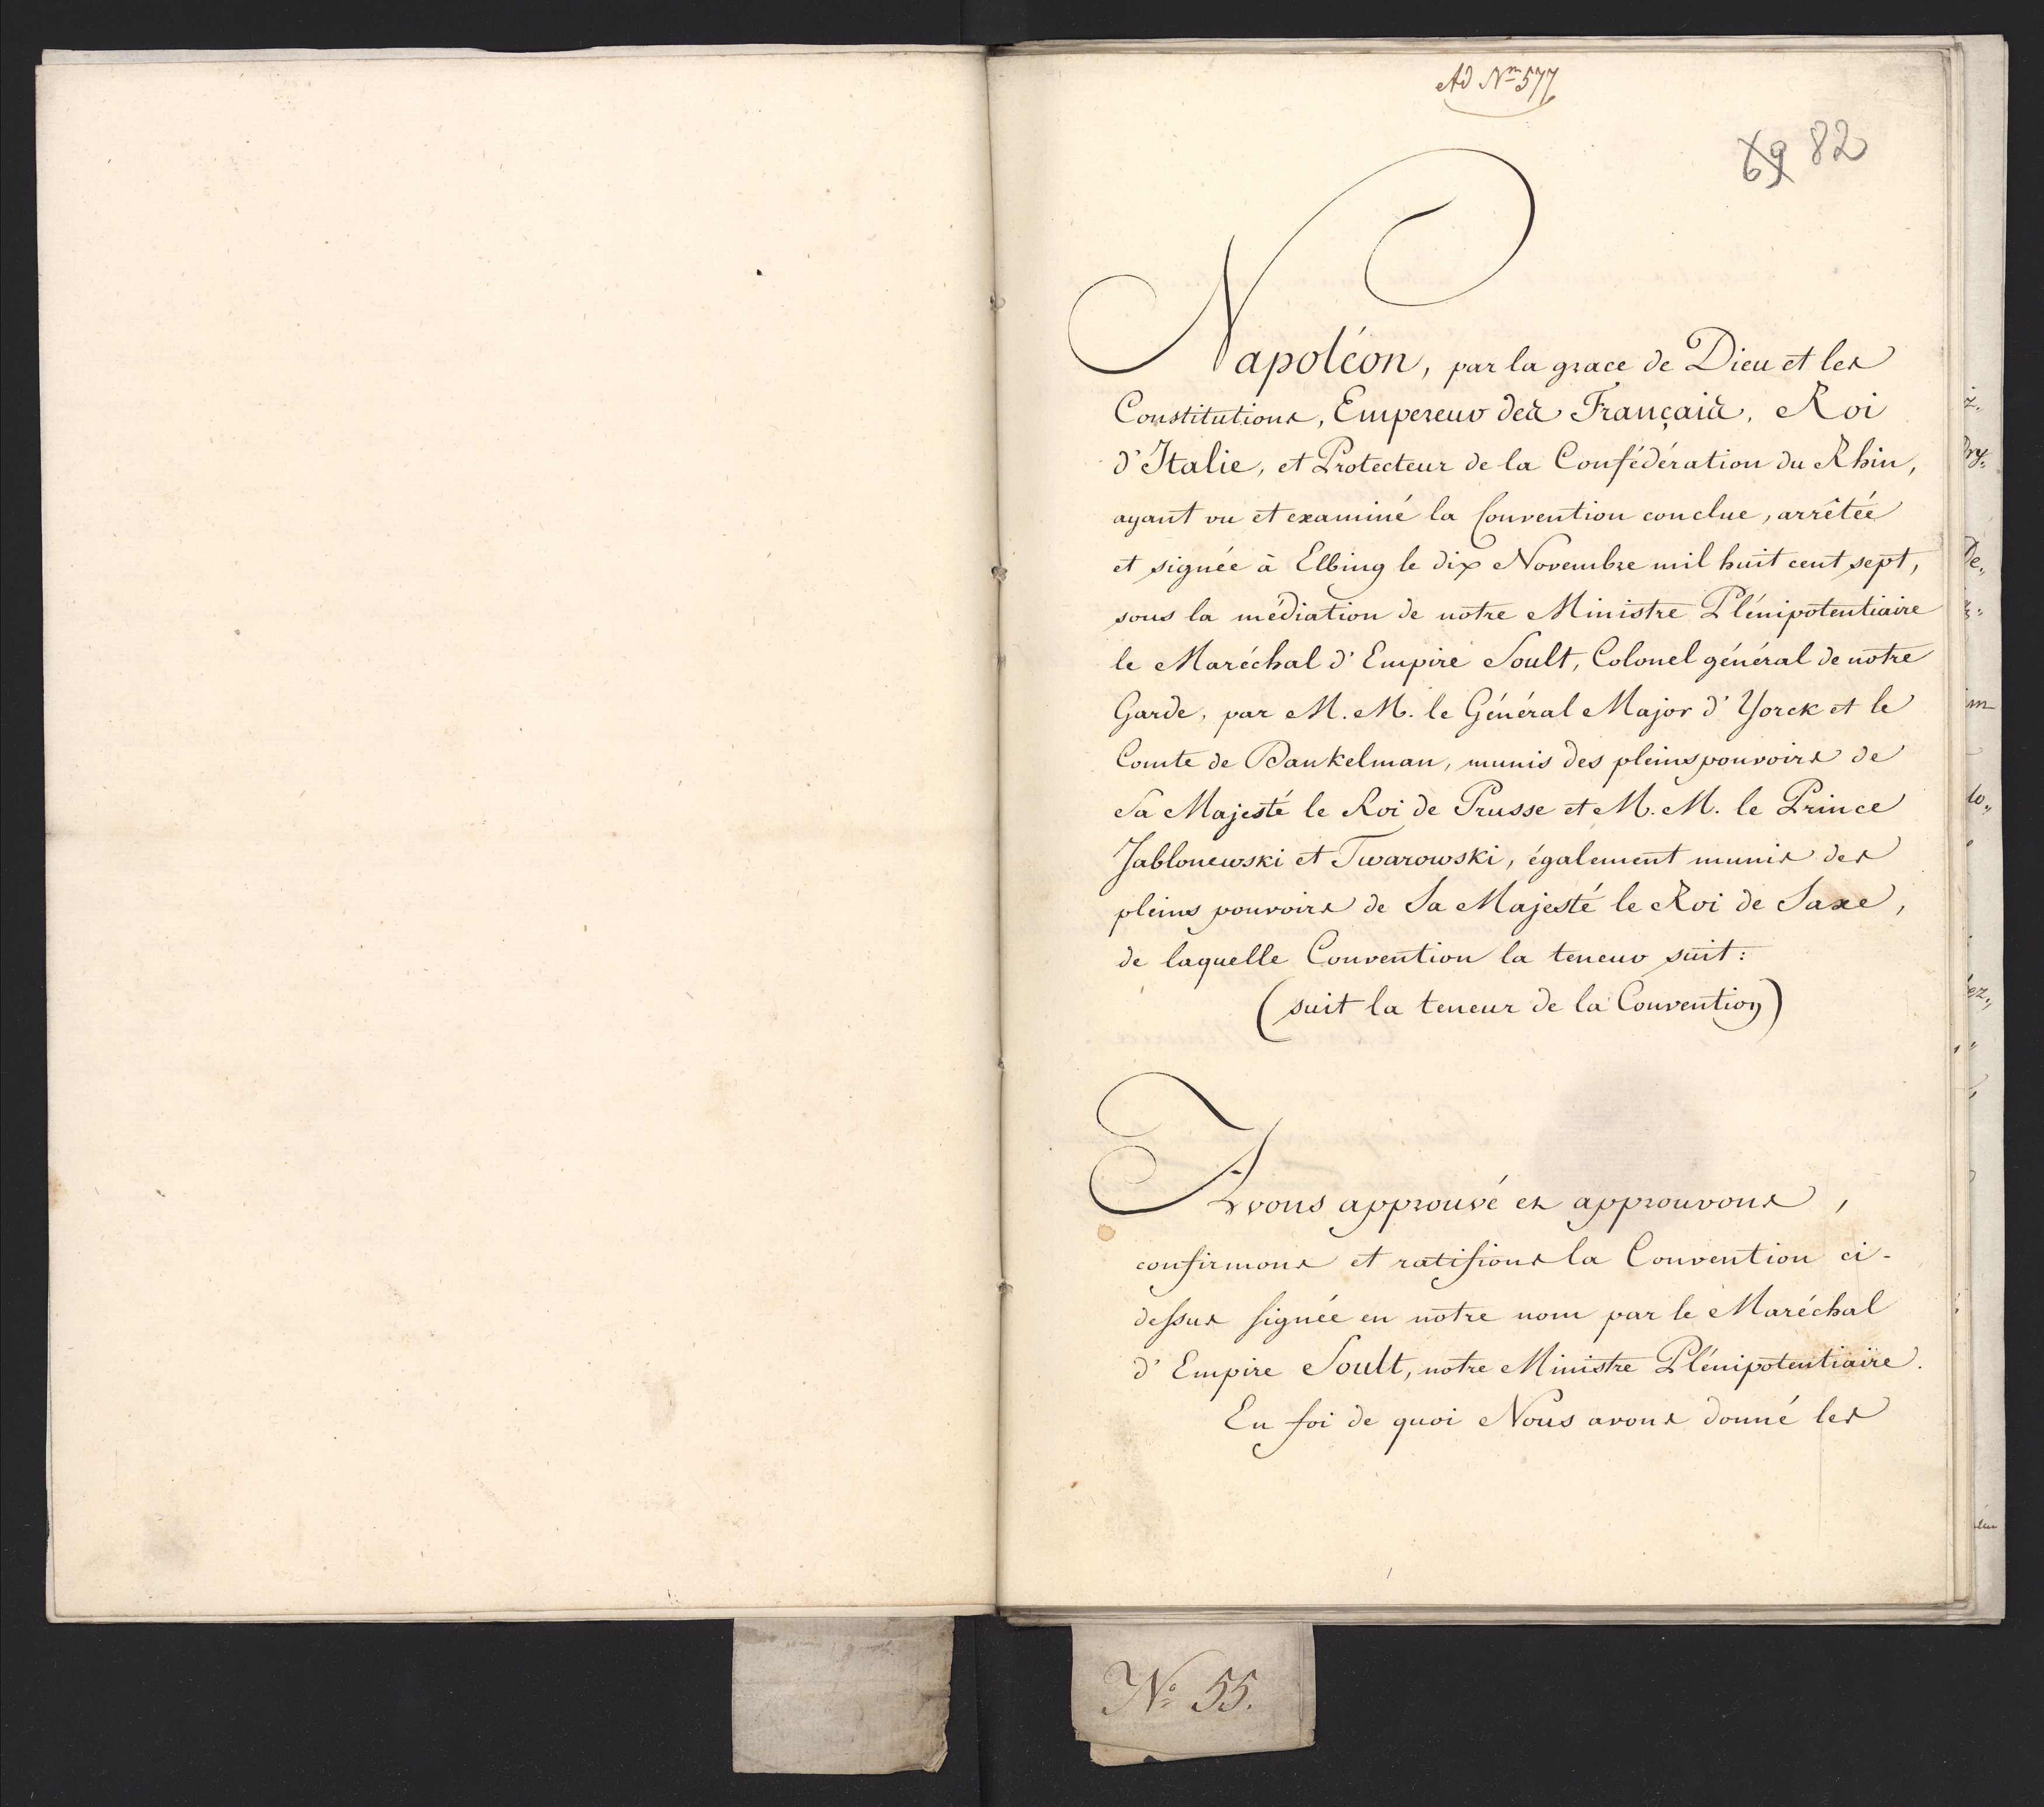 Ad Nrm 577
69 82
Napoléon, par la grace de Dieu et les
Constitutions, Empereur des Français, Roi
d'Italie, et Protecteur de la Confédération du Rhin,
ayant vu et examiné la Convention conclue, arrêtée
et signée à Elbing le dix Novembre mil huit cent sept,
sous la médiation de notre Ministre Plénipotentiaire
le Maréchal d'Empire Soult, Colonel général de notre
Garde, par M. M. le Général Major d'Yorck et le
Comte de Dankelman, munis des pleinspouvoirs de
Sa Majesté le Roi de Prusse et M. M. le Prince
Jablonewski et Twarowski, également munis des
pleins pouvoirs de Sa Majesté le Roi de Saxe,
de laquelle Convention la teneur suit:
(suit la teneur de la Convention)
Avons approuvé et approuvons,
confirmons et ratifions la Convention ci-
dessus signée en notre nom par le Maréchal
d'Empire Soult, notre Ministre Plénipotentiaire.
En foi de quoi Nous avons donné les
No 55.